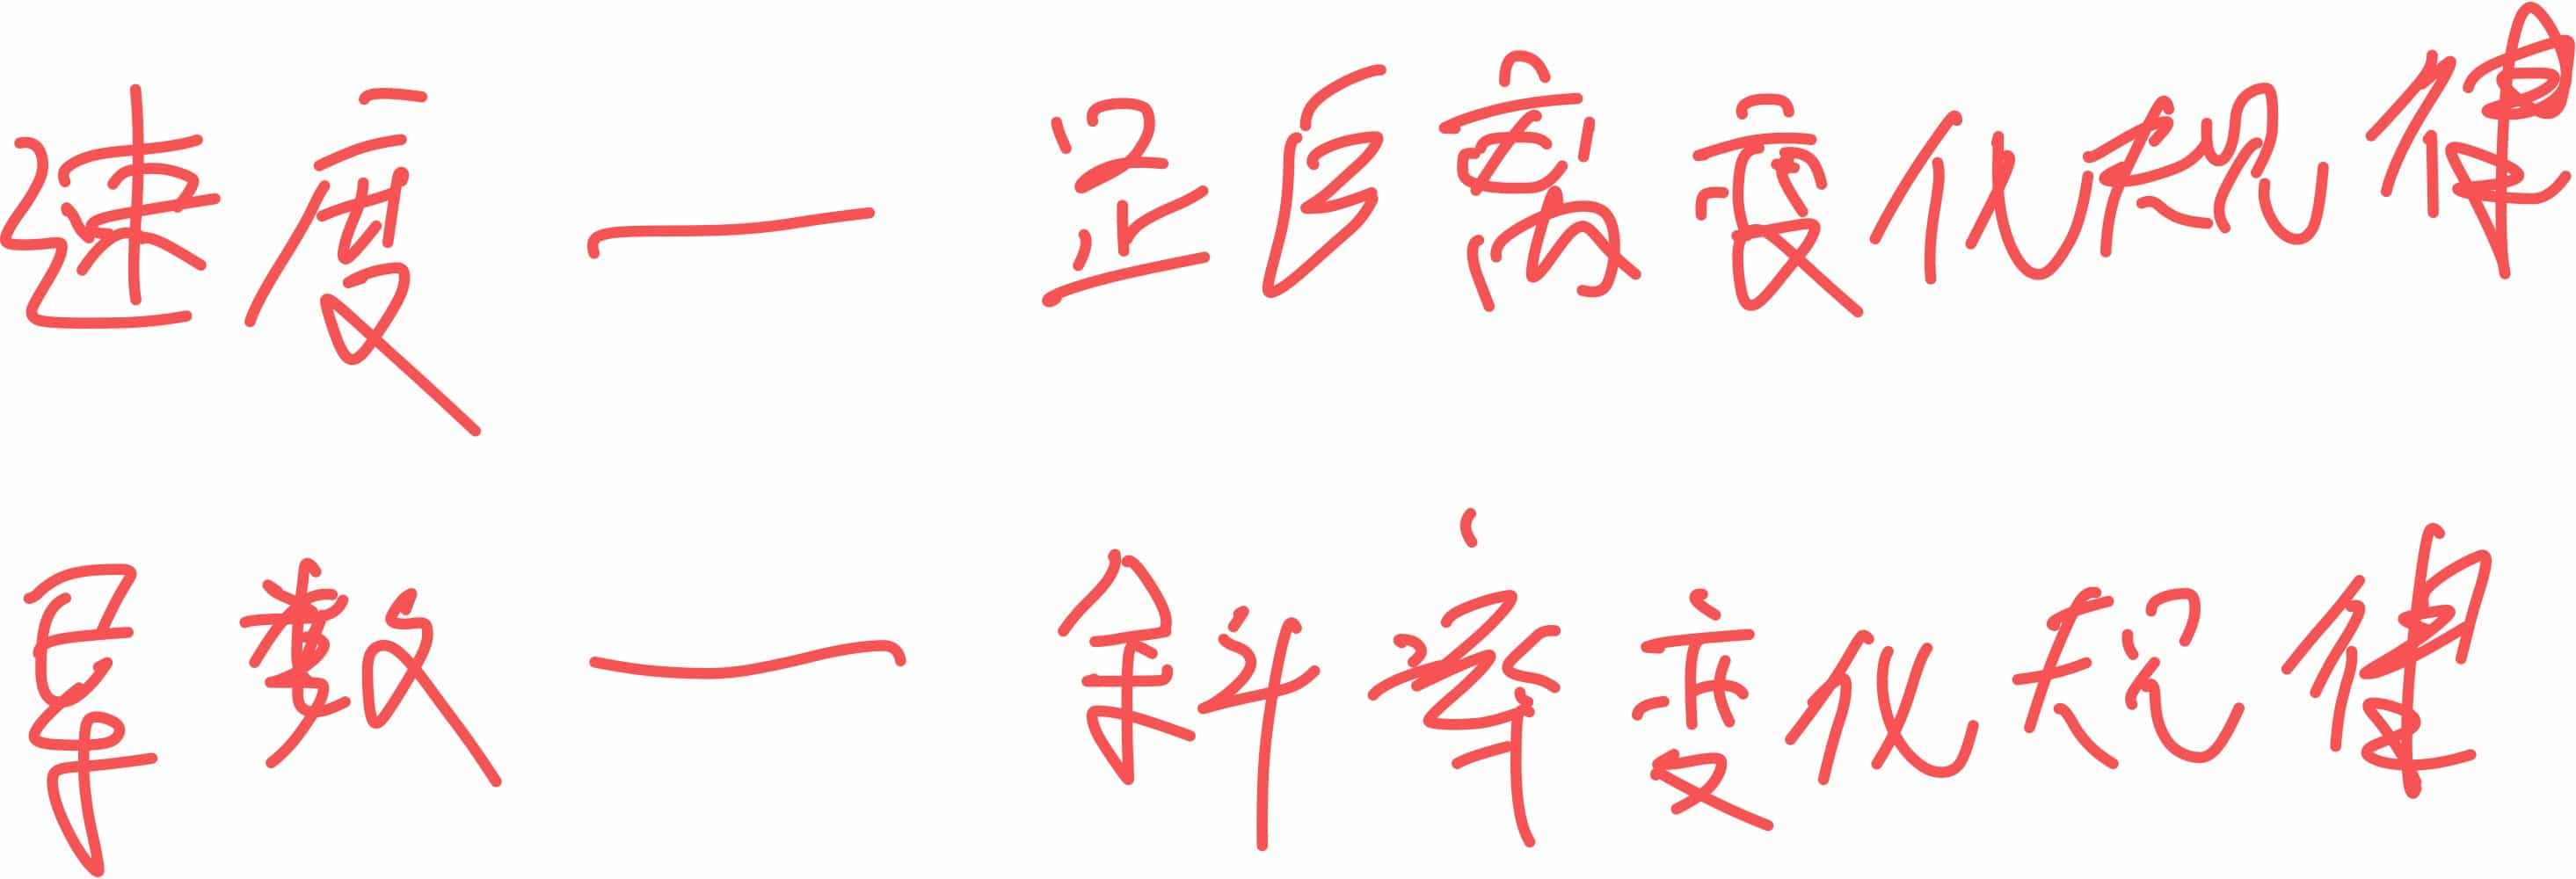 速度 —— 距离变化规律
导数 —— 斜率变化规律